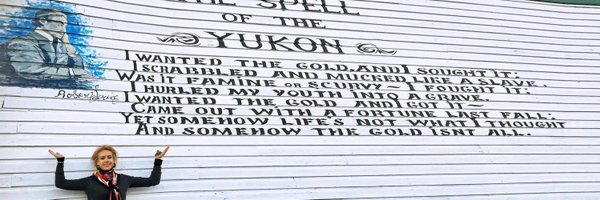 THE SPELL
OF THE
YUKON
I WANTED THE GOLD, AND I SOUGHT IT;
I SCRABBLED AND MUCKED LIKE A SLAVE.
WAS IT FAMINE OR SCURVY ~ I FOUGHT IT;
I HURLED MY YOUTH INTO A GRAVE.
I WANTED THE GOLD AND I GOT IT ~
CAME OUT WITH A FORTUNE LAST FALL;
YET SOMEHOW LIFE'S NOT WHAT I THOUGHT
AND SOMEHOW THE GOLD ISNT ALL.